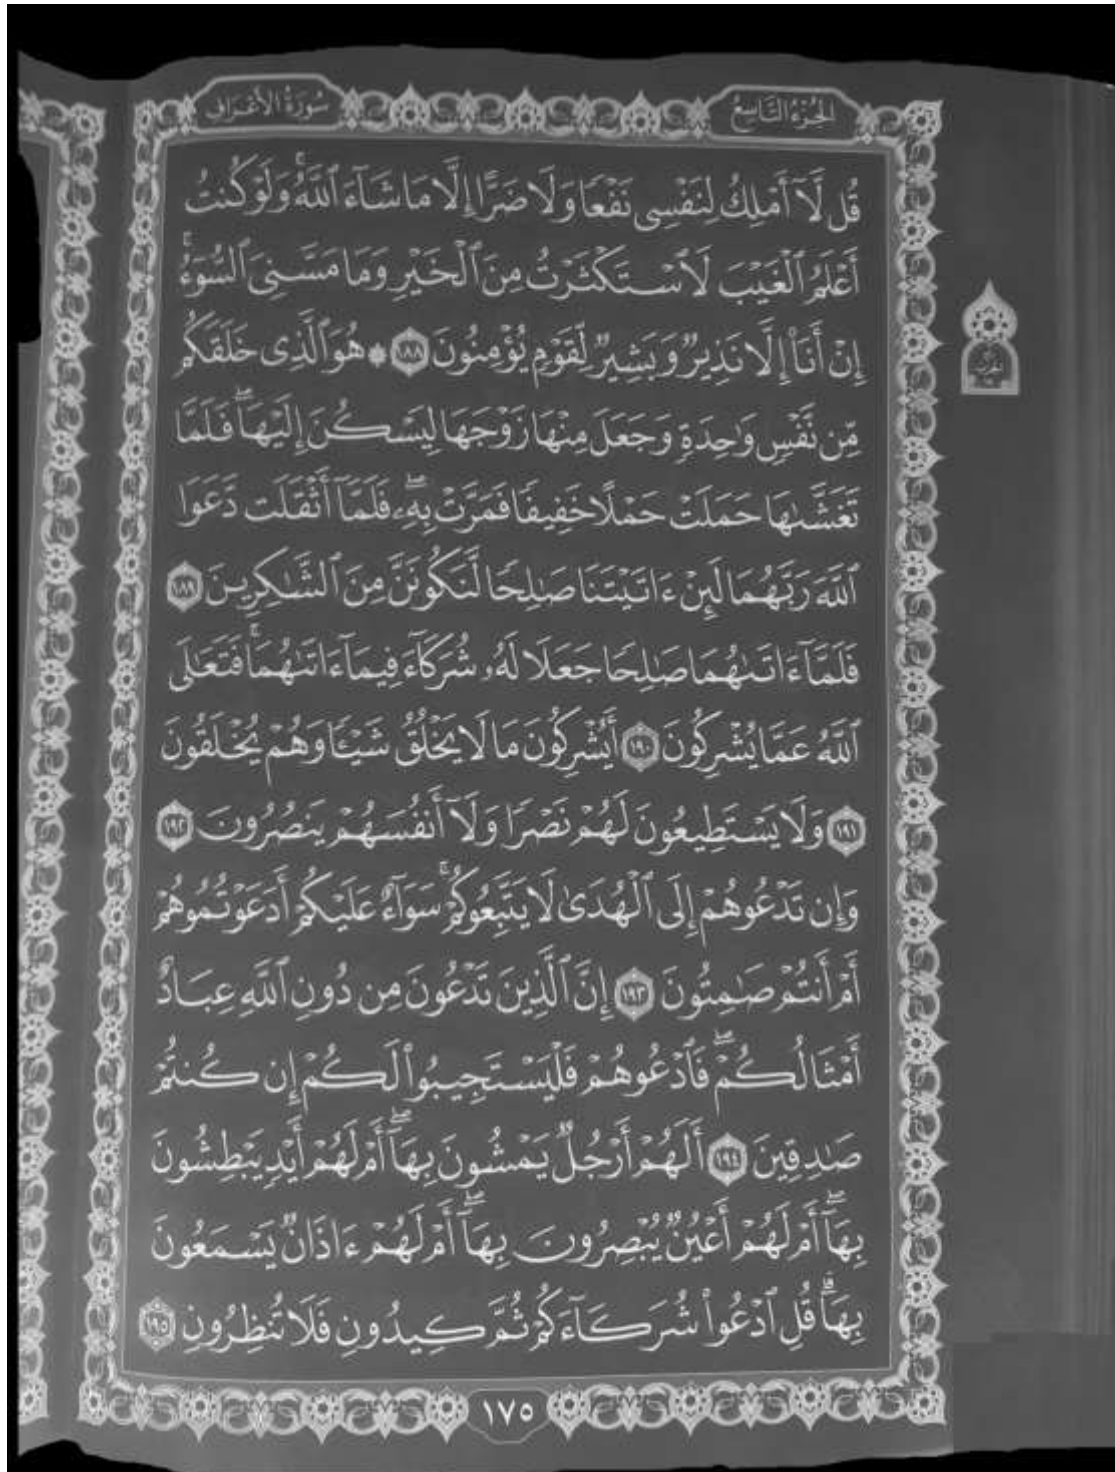 الجُزْءُ التَّاسِعُ
سُورَةُ الأَعْرَافِ
قُل لَّآ أَمْلِكُ لِنَفْسِى نَفْعًا وَلَا ضَرًّا إِلَّا مَا شَآءَ ٱللَّهُۚ وَلَوْ كُنتُ
أَعْلَمُ ٱلْغَيْبَ لَٱسْتَكْثَرْتُ مِنَ ٱلْخَيْرِ وَمَا مَسَّنِىَ ٱلسُّوٓءُۚ
إِنْ أَنَا۠ إِلَّا نَذِيرٌ وَبَشِيرٌ لِّقَوْمٍ يُؤْمِنُونَ ١٨٨ * هُوَ ٱلَّذِى خَلَقَكُم
مِّن نَّفْسٍ وَٰحِدَةٍ وَجَعَلَ مِنْهَا زَوْجَهَا لِيَسْكُنَ إِلَيْهَاۖ فَلَمَّا
تَغَشَّىٰهَا حَمَلَتْ حَمْلًا خَفِيفًا فَمَرَّتْ بِهِۦۖ فَلَمَّآ أَثْقَلَت دَّعَوَا
ٱللَّهَ رَبَّهُمَا لَئِنْ ءَاتَيْتَنَا صَٰلِحًا لَّنَكُونَنَّ مِنَ ٱلشَّٰكِرِينَ ١٨٩
فَلَمَّآ ءَاتَىٰهُمَا صَٰلِحًا جَعَلَا لَهُۥ شُرَكَآءَ فِيمَآ ءَاتَىٰهُمَاۚ فَتَعَٰلَى
ٱللَّهُ عَمَّا يُشْرِكُونَ ١٩٠ أَيُشْرِكُونَ مَا لَا يَخْلُقُ شَيْـًٔا وَهُمْ يُخْلَقُونَ
١٩١ وَلَا يَسْتَطِيعُونَ لَهُمْ نَصْرًا وَلَآ أَنفُسَهُمْ يَنصُرُونَ ١٩٢
وَإِن تَدْعُوهُمْ إِلَى ٱلْهُدَىٰ لَا يَتَّبِعُوكُمْۚ سَوَآءٌ عَلَيْكُمْ أَدَعَوْتُمُوهُمْ
أَمْ أَنتُمْ صَٰمِتُونَ ١٩٣ إِنَّ ٱلَّذِينَ تَدْعُونَ مِن دُونِ ٱللَّهِ عِبَادٌ
أَمْثَالُكُمْۖ فَٱدْعُوهُمْ فَلْيَسْتَجِيبُوا۟ لَكُمْ إِن كُنتُمْ
صَٰدِقِينَ ١٩٤ أَلَهُمْ أَرْجُلٌ يَمْشُونَ بِهَآۖ أَمْ لَهُمْ أَيْدٍ يَبْطِشُونَ
بِهَآۖ أَمْ لَهُمْ أَعْيُنٌ يُبْصِرُونَ بِهَآۖ أَمْ لَهُمْ ءَاذَانٌ يَسْمَعُونَ
بِهَاۗ قُلِ ٱدْعُوا۟ شُرَكَآءَكُمْ ثُمَّ كِيدُونِ فَلَا تُنظِرُونِ ١٩٥
١٧٥